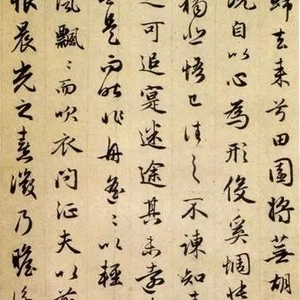 歸去來兮田園將蕪胡
既自以心為形役奚惆悵
獨悲悟已往之不諫知來
之可追寔迷途其未遠
今是而昨非舟遙〻以輕
風飄〻而吹衣問征夫以前
恨晨光之熹微乃瞻衡